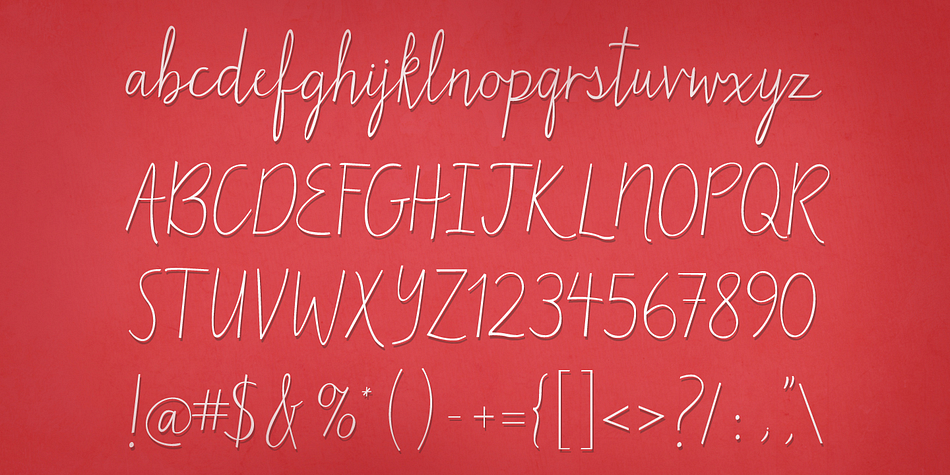 abcdefghijklnopqrstuvwxyz
ABCDEFGHIJKLNOPQR
STUVWXYZ1234567890
!@#$&%*()-+={[]<>?/:;,"\